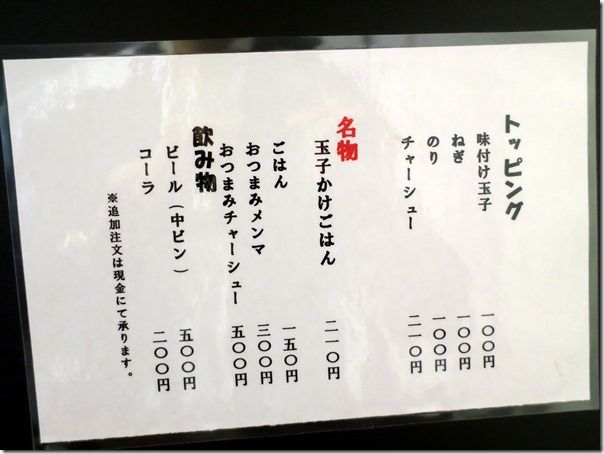 トッピング
味付け玉子 一〇〇円
ねぎ 一〇〇円
のり 一〇〇円
チャーシュー 二一〇円
名物
玉子かけごはん 二一〇円
ごはん 一五〇円
おつまみメンマ 三〇〇円
おつまみチャーシュー 五〇〇円
飲み物
ビール(中ビン) 五〇〇円
コーラ 二〇〇円
※追加注文は現金にて承ります。